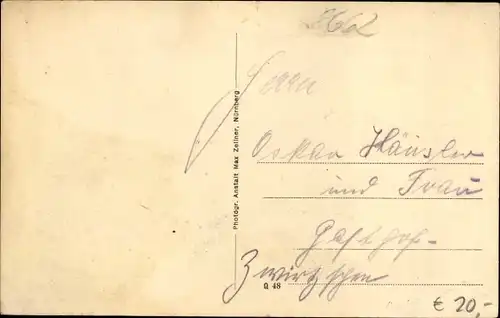 Herrn
Oskar Häusler
und Frau
Gasthof-
Photogr. Anstalt Max Zellner, Nürnberg
Q 48
€ 20,-